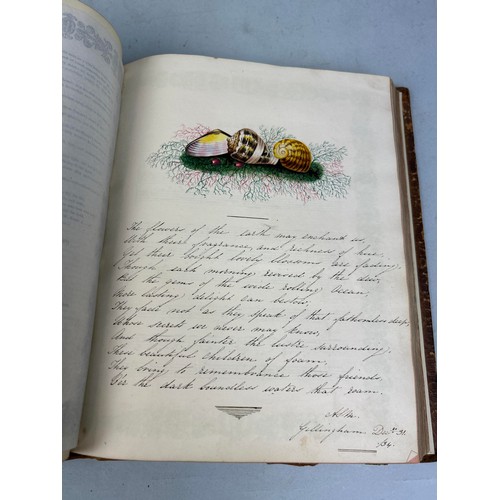 The flowers of the earth may enchant us,
With their fragrance, and richness of hue,
Yet their bright lovely blossoms are fading,
Though each morning revived by the dew,
But the gems of the wide rolling Ocean,
More lasting delight can bestow,
They fade not as they speak of that fathomless deep,
Whose secrets we never may know,
And though fainter the lustre surrounding
These beautiful children of foam,
They bring to remembrance those friends
O'er the dark boundless waters that roam.
Gillingham Decr. 31